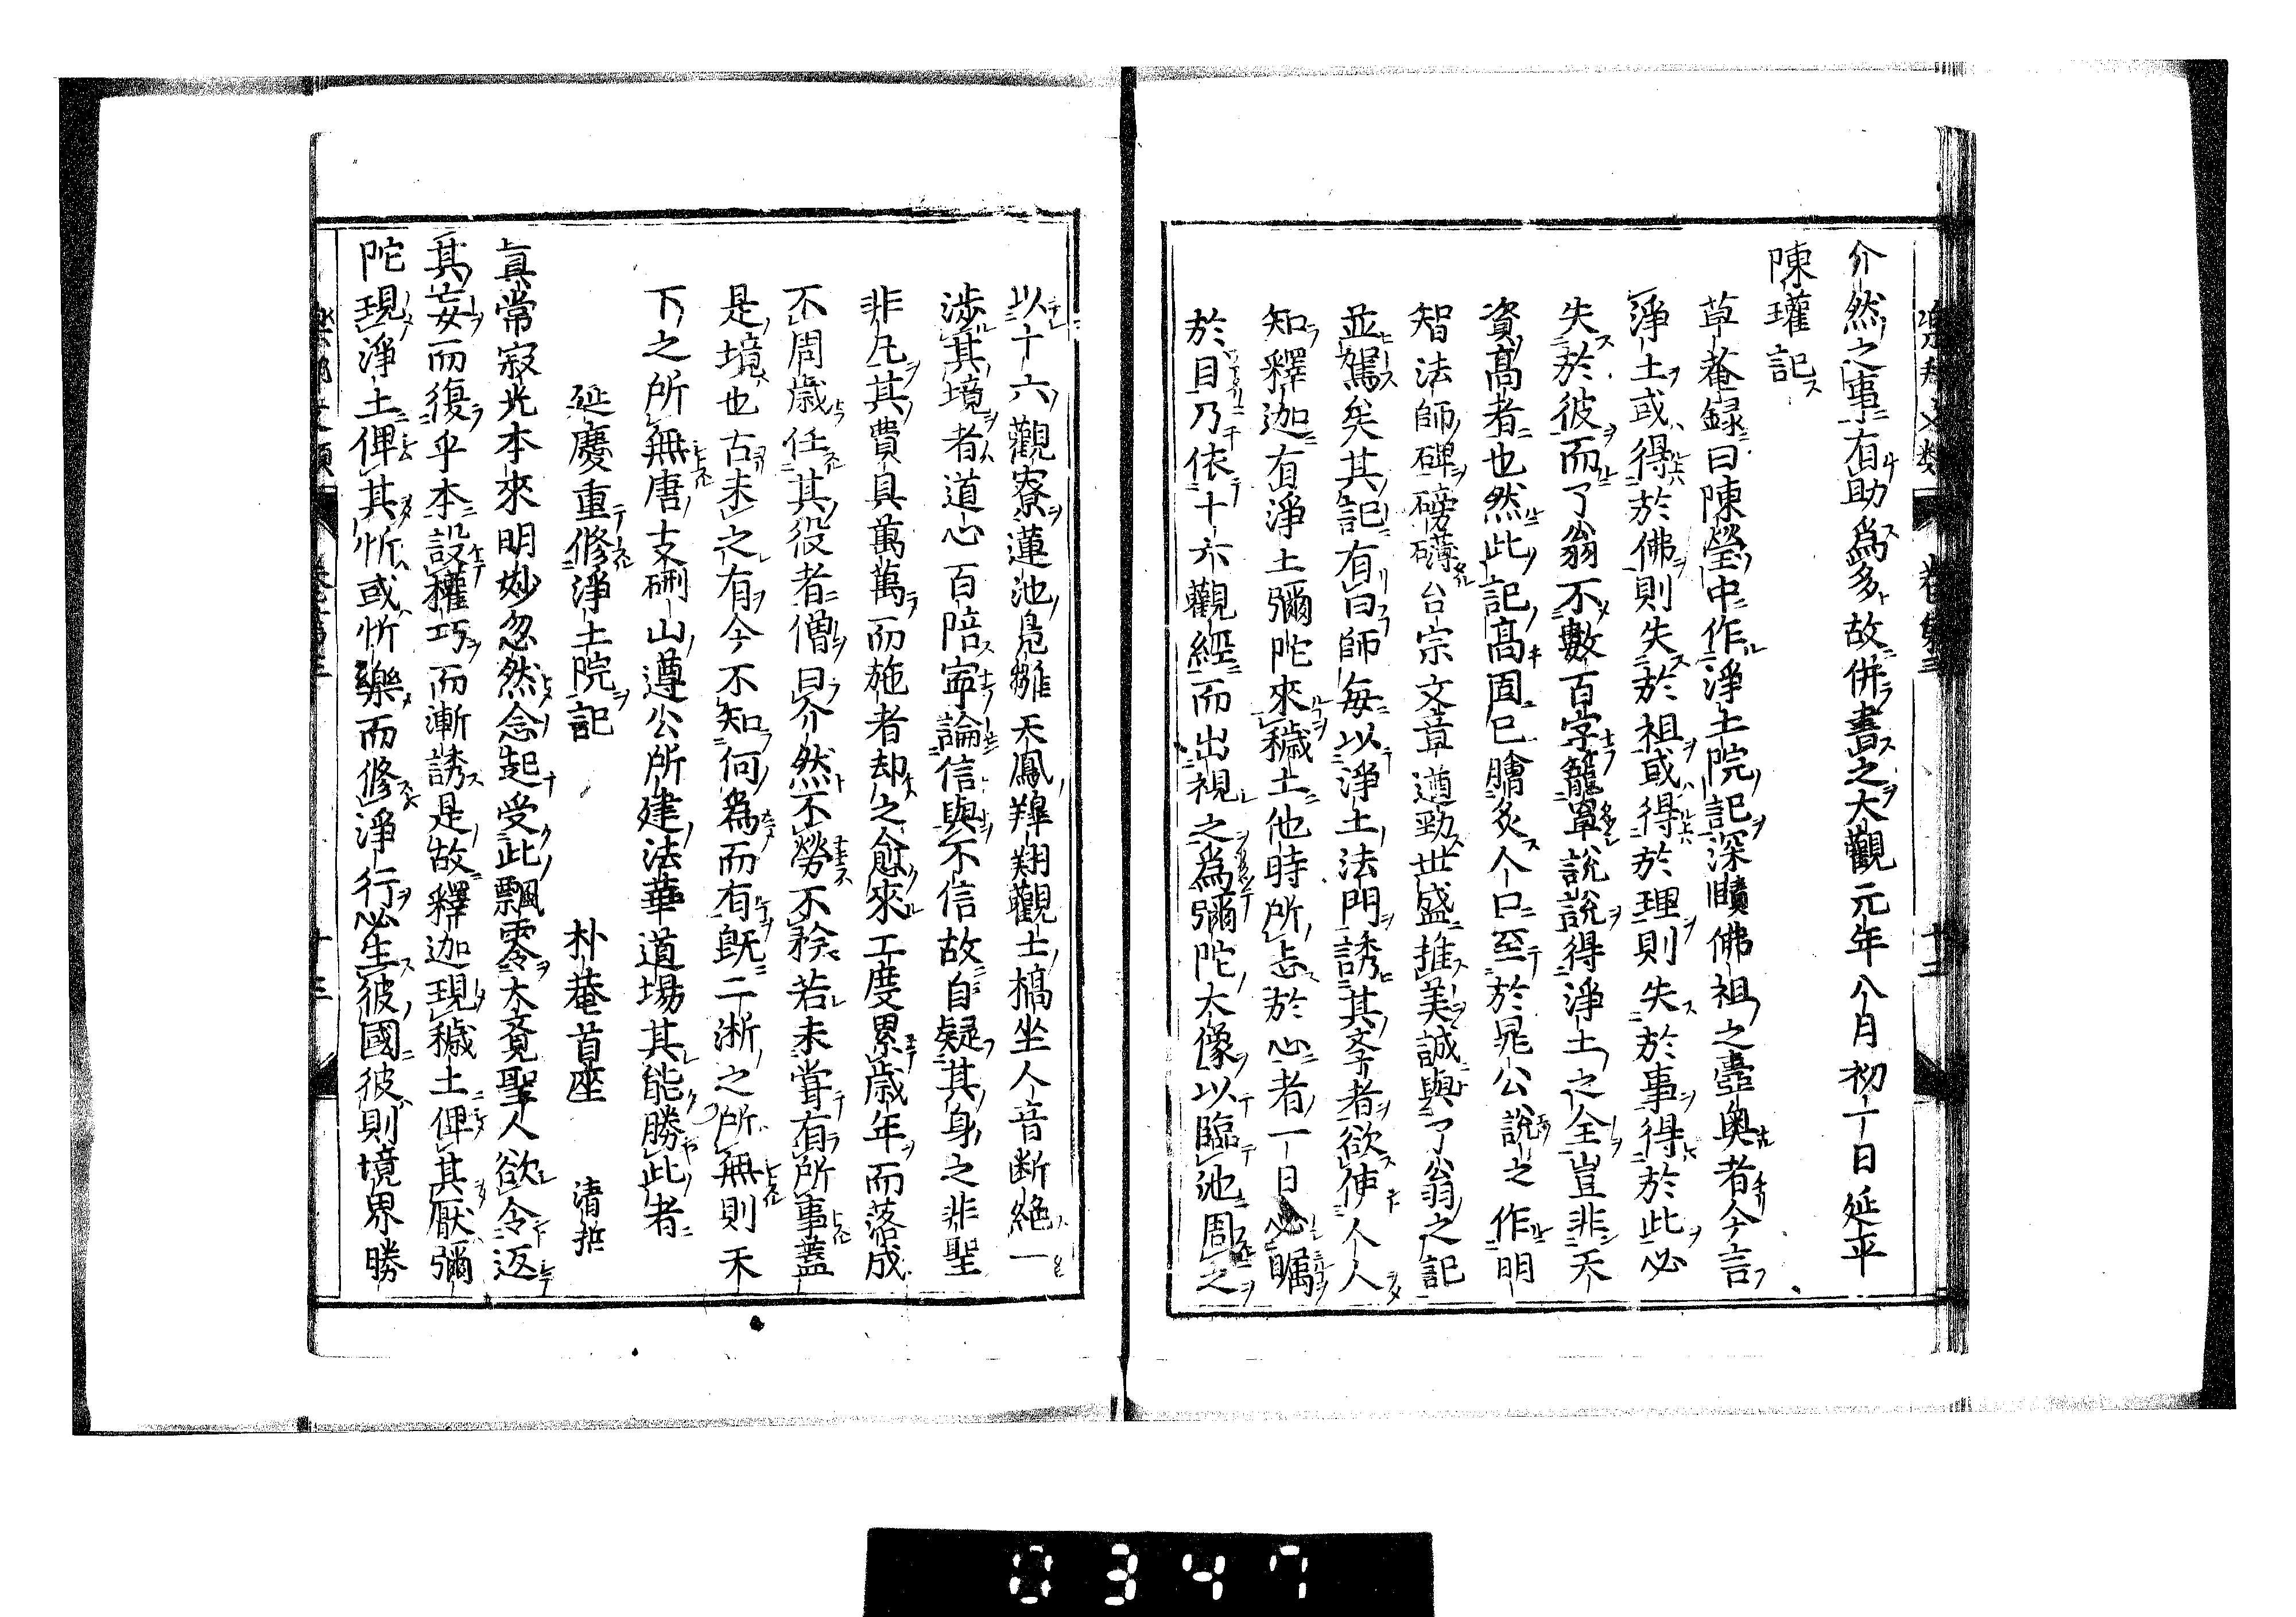 介然之事有助爲多故併書之大觀元年八月初一日延平
陳瓘記
草菴録曰陳瑩中作淨土院記深賾佛祖之壼奧者今言
淨土或得於佛則失於祖或得於理則失於事得於此必
失於彼而了翁不數百字籠罩説説得淨土之全豈非天
資高者也然此記高固已膾炙人口至於晁公說之作明
智法師碑磅礴台宗文章遒勁世盛推美誠與了翁之記
並駕矣其記有曰師每以淨土法門誘其學者欲使人人
知釋迦有淨土彌陀來穢土他時所忐於心者一日必矚
於目乃依十六觀經而出視之爲彌陀大像以臨池周之
以十六觀寮蓮池鳧雝天鳳翬翔觀士槁坐人音断絶一
涉其境者道心百陪寧論信與不信故自疑其身之非聖
非凡其費具萬萬而施者却之愈來工度累歳年而落成
不周歳任其役者僧曰介然不勞不矜若未甞有所事蓋
是境也古未之有今不知何爲而有既二淅之所無則天
下之所無唐支硎山遵公所建法華道場其能勝此者
延慶重修淨土院記　朴菴首座　清哲
眞常寂光本來明妙忽然念起受此飄零大覺聖人欲令返
其妄而復乎本設權巧而漸誘是故釋迦現穢土俾其厭彌
陀現淨土俾其忻或忻樂而修淨行必生彼國彼則境界勝
0347